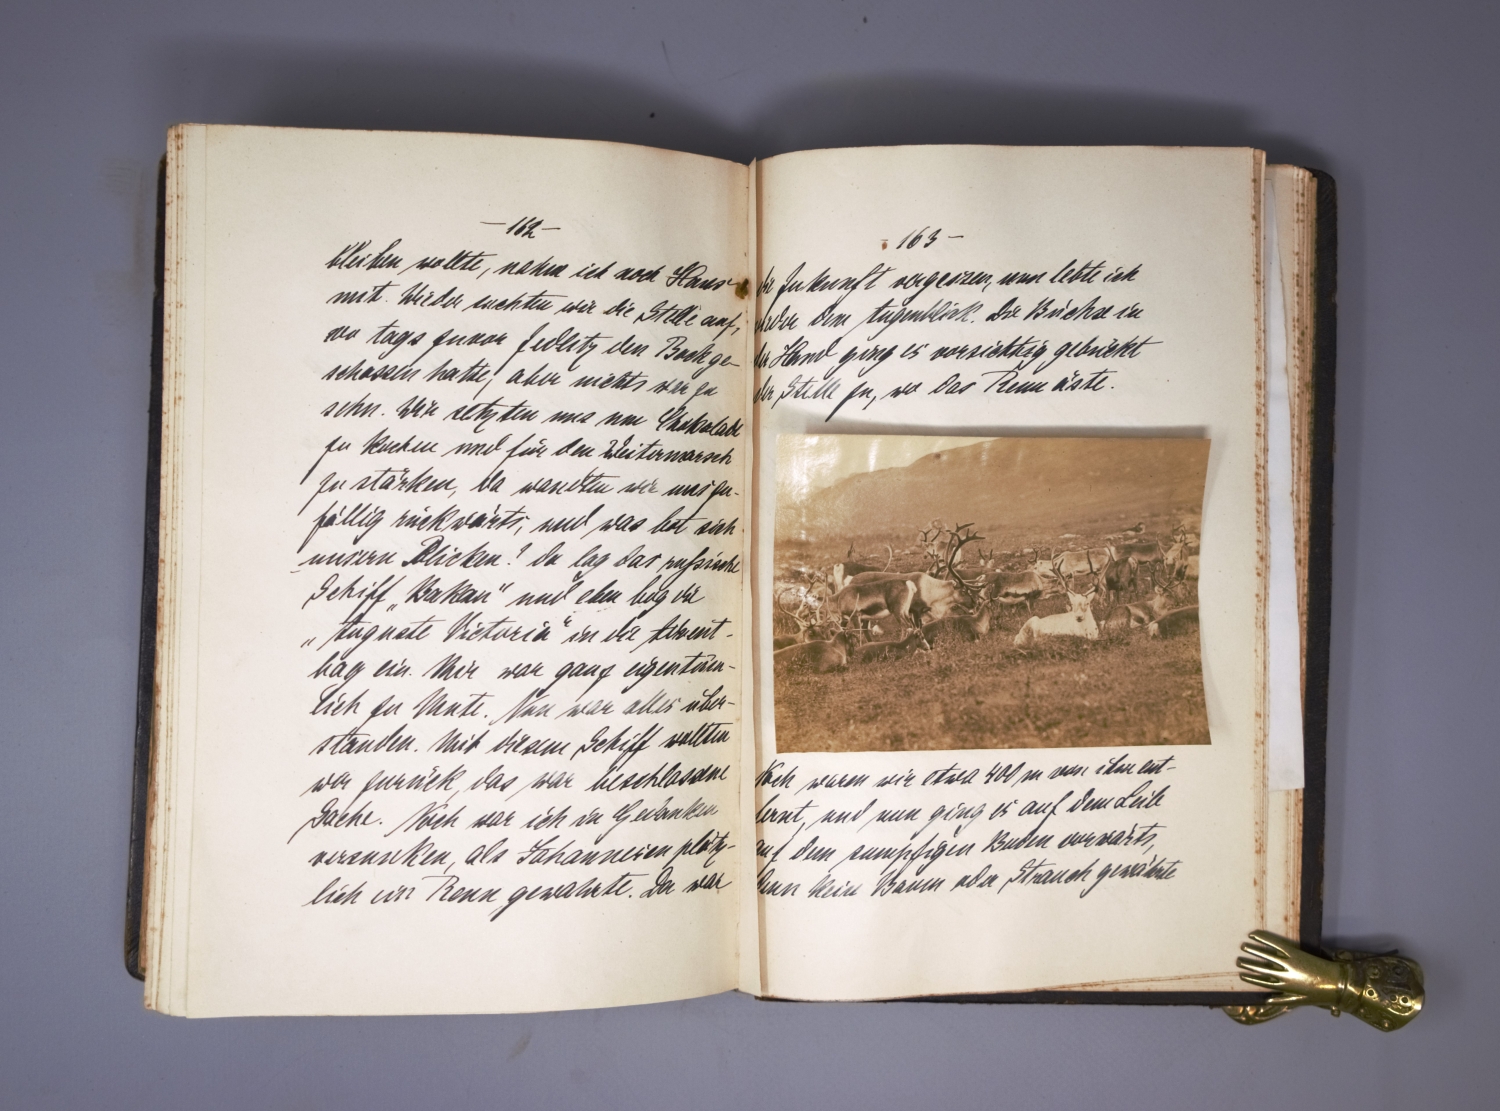 – 162 –
bleiben wollte, nahm ich noch Hans
mit. Wieder suchten wir die Stelle auf,
wo tags zuvor Zedlitz den Bock ge-
schossen hatte, aber nichts war zu
sehn. Wir setzten uns um Chokolade
zu kochen und für den Weitermarsch
zu stärken, da wandten wir uns zu-
fällig rückwärts, und was bot sich
unsern Blicken? Da lag das russische
Schiff „Bakan“ und eben bog die
„Auguste Victoria“ in die Advent-
bay ein. Mir war ganz eigentüm-
lich zu Mute. Nun war alles über-
standen. Mit diesem Schiff wollten
wir zurück, das war beschlossene
Sache. Noch war ich in Gedanken
versunken, als Johannesen plötz-
lich ein Renn gewahrte. Da war
– 163 –
die Zukunft vergessen, nun lebte ich
wieder dem Augenblick. Die Büchse in
der Hand ging es vorsichtig gebückt
der Stelle zu, wo das Renn äste.
Noch waren wir etwa 400 m von ihm ent-
fernt, und nun ging es auf dem Leib
auf dem sumpfigen Boden vorwärts,
denn kein Baum oder Strauch gewährte